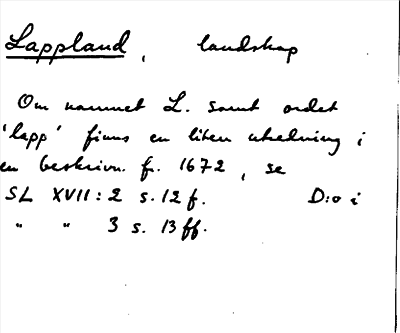 Lappland, landskap
Om namnet L. samt ordet
'lapp' finns en liten utredning i
en beskrivn. fr. 1672, se
SL XVII:2 s. 12 f. D:o i
" " 3 s. 13 ff.